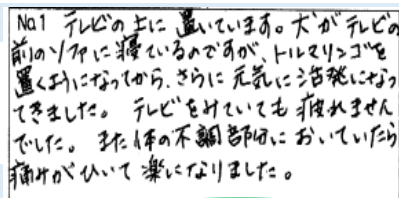 No.1 テレビの上に置いています。犬がテレビの
前のソファに寝ているのですが、トルマリンゴを
置くようになってから、さらに元気に活発になっ
てきました。テレビをみていても疲れません
でした。また体の不調部分においていたら
痛みがひいて楽になりました。